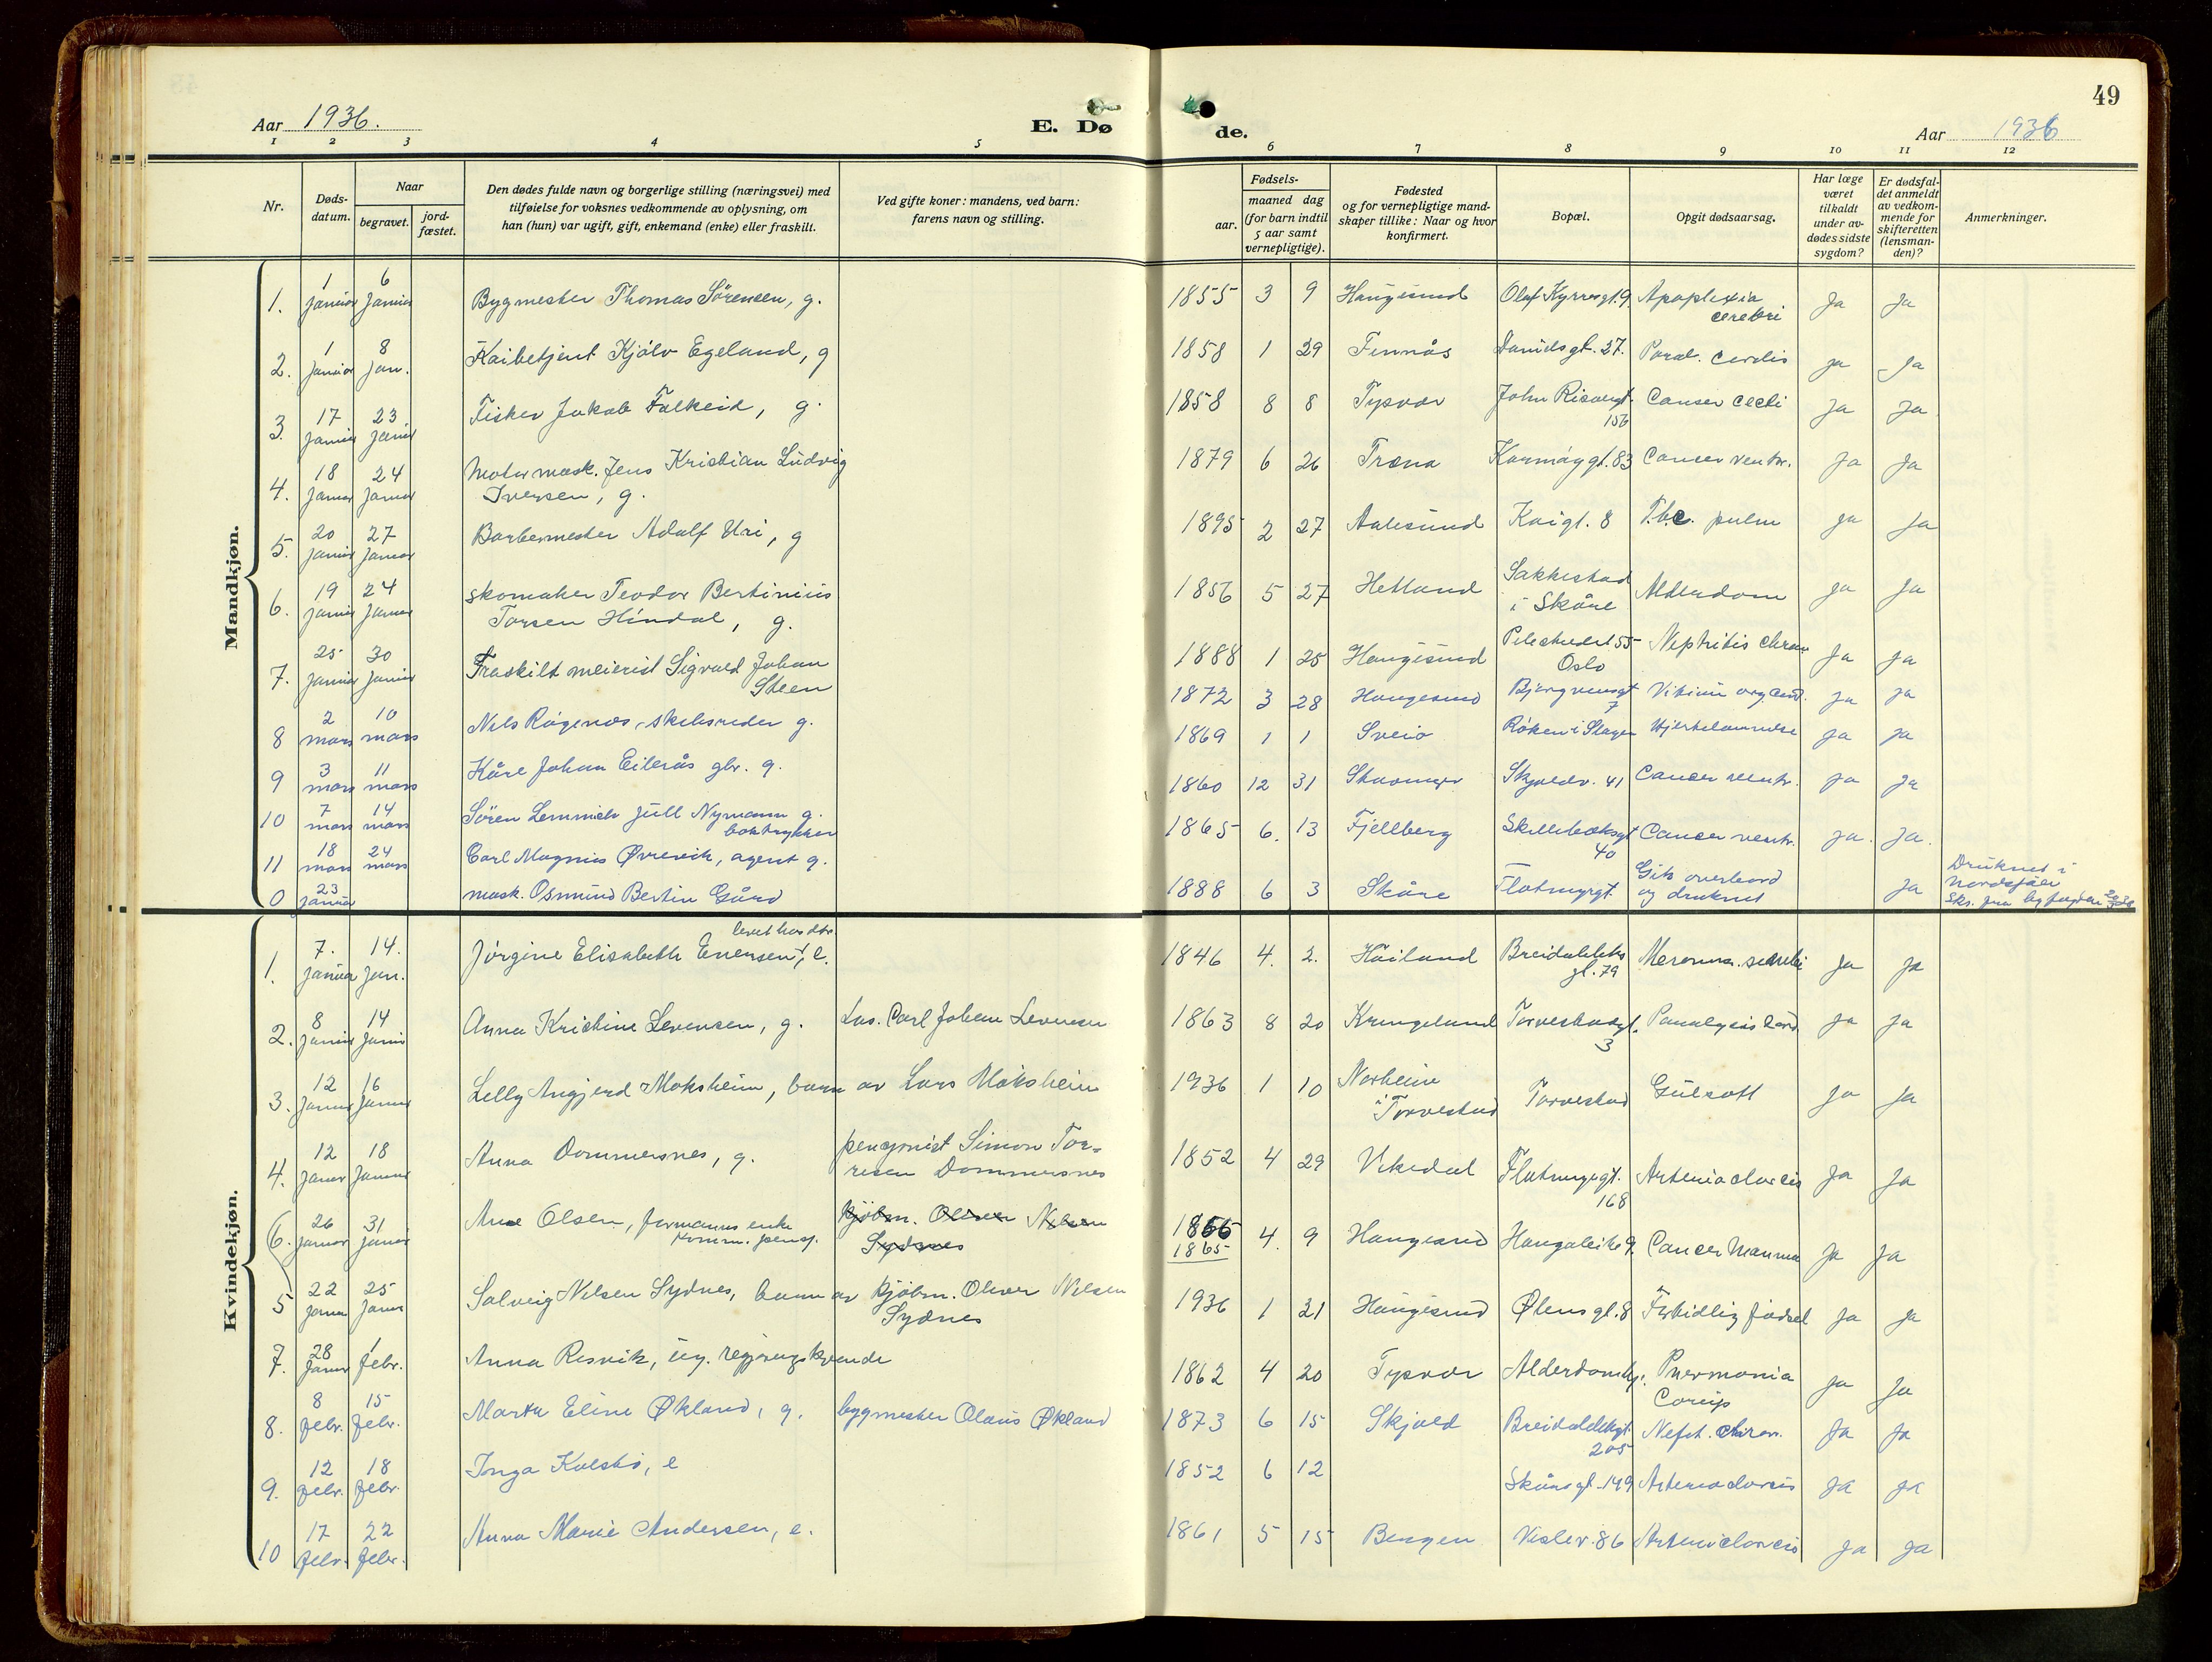 49
Aar 1936.
E. Dø
de.
Aar 1936
1 2 3 4 5 6 7 8 9 10 11 12
Nr.
Døds-
datum.
Naar
begravet.
jord-
fæstet.
Den dødes fulde navn og borgerlige stilling (næringsvei) med
tilføielse for voksnes vedkommende av oplysning, om
han (hun) var ugift, gift, enkemand (enke) eller fraskilt.
Ved gifte koner: mandens, ved barn:
farens navn og stilling.
aar.
Fødsels-
maaned dag
(for barn indtil
5 aar samt
vernepligtige).
Fødested
og for vernepligtige mand-
skaper tillike: Naar og hvor
konfirmert.
Bopæl.
Opgit dødsaarsag.
Har læge
været
tilkaldt
under av-
dødes sidste
sygdom?
Er dødsfal-
det anmeldt
av vedkom-
mende for
skifteretten
(lensman-
den)?
Anmerkninger.
Mandkjøn.
1. 1 Januar 6 Januar Bygmester Thomas Sörensen, g. 1855 3 9 Haugesund Olaf Kyrresgt. 9 Apoplexia
cerebri Ja Ja
2. 1 Januar 8 Jan. Kaibetjent Kjölv Egeland, g 1858 1 29 Finnås Davidsgt. 27. Paral. cordis Ja Ja
3. 17 Januar 23 Januar Fisker Jakob Falkeid, g. 1858 8 8 Tysvær
156 Cancer Ja Ja
4. 18 Januar 24 Januar Motormask. Jens Kristian Ludvig
Iversen, g. 1879 6 26 Træna Karmöygt. 83 Cancer ventr. Ja Ja
5. 20 Januar 27 Januar Barbermester Adolf Uri, g 1895 2 27 Aalesund Kaigt. 8 T.b.c. pulm Ja Ja
6. 19 Januar 24 Januar skomaker Teodor Bertinius
Torsen Hindal, g. 1856 5 27 Hetland Sakkestad
i Skåre Alderdom Ja Ja
7. 25 Januar 30 Januar Fraskilt meierist Sigvald Johan
Steen 1888 1 25 Haugesund Pilestredet 55
Oslo Nephritis chron Ja Ja
8 2 mars 10 mars Nils Rögenes, skibsreder g. 1872 3 28 Haugesund
7 Vitium org. cord. Ja Ja
9 3 mars 11 mars Kåre Johan Eilerås gbr. g. 1869 1 1 Sveio Röken i Hjertelammelse Ja Ja
10 7 mars 14 mars Sören Lemmich Jull Nymann g.
boktrykker 1860 12 31 Stavanger Skjoldv. 41 Cancer ventr. Ja Ja
11 18 mars 24 mars Carl Magnus Øvrevik, agent g. 1865 6. 13 Fjellberg Skillebæksgt
40 Cancer ventr. Ja. Ja.
0 23 Januar mask. Osmund Bertin Gård 1888 6 3 Skåre Flotmyrgt. Gik overbord
og druknet Ja Druknet i
Nordsjöen
Kvindekjøn.
levet hos dtr.
1. 7. Januar 14. Jan. Jörgine Elisabeth Enersen, e. 1846 4. 2. Håland Breidablikks
gt. 79 Ja Ja
2. 8 Januar 14 Januar Anna Kristine Sevensen, g. Las. Carl Johan 1863 8 20 Kringeland Torvestadgt.
3 Paralysis Ja Ja
3. 12 Januar 16 Januar Lelly Angjerd Moksheim, barn av Lars Moksheim 1936 1 10 Norheim
i Torvestad Torvestad Gulsott Ja Ja
4. 12 Januar 18 Januar Anna Dommersnes, g. pensjonist Simon Tor-
resen Dommersnes 1852 4 29 Vikedal Flotmyrgt.
168 Ja Ja
6. 26 Januar 31 Januar Ane Olsen, formanns enke
komm. pensj. kjöbm. Oliver Nilsen
Sydnes 1866
1865 4. 9 Haugesund Cancer Mamma Ja Ja
5 22 Januar 25 Januar Solveig Nilsen Sydnes, barn av kjöbm. Oliver Nilsen
Sydnes 1936 1 21 Haugesund Ølensgt. 8 Förtidlig födsel Ja Ja
7. 28 Januar 1 febr. Anna Resvik, ug. regjöringskvinde 1862 4 20 Tysvær Alderdomshj. Pnevmonia
Ja Ja
8. 8 febr. 15 febr. Marta Eline Økland, g. bygmester Olaus Økland 1873 6 15 Skjold Breidablikgt.
205 Nefrit. chron. Ja Ja
9. 12 febr. 18 febr. Inga Kolstö, e 1852 6 12 Skåregt. 149 Ja Ja
10 17 febr. 22 febr. Anna Marie Andersen, e. 1861 5 15 Bergen Ja Ja